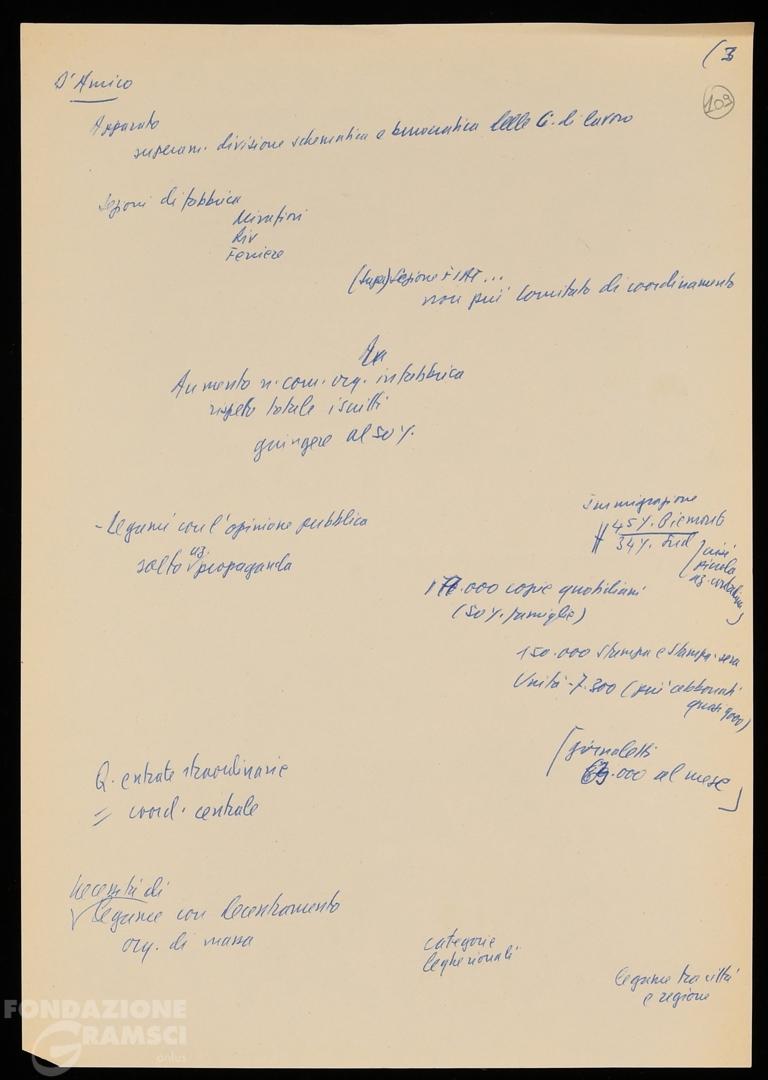 (3
109
D'Amico
Apparato
superam. divisione schematica e burocratica delle C. di lavoro
Sezioni di fabbrica
Mirafiori
Riv
Ferriere
(Supe) Sezione FIAT...
non più Comitato di coordinamento
Aumento n. com. org. in fabbrica
rispetto totale iscritti
giungere al 50%.
- Legami con l'opinione pubblica
salto propaganda
Immigrazione
45%. Piemonte
34%. Sud
.000 copie quotidiani
(50%. famiglie)
150.000 Stampa e Stampa-sera
Unità - 7.300 (più abbonati
quasi 9000)
[giornaletti
.000 al mese]
Q. entrate straordinarie
= coord. centrale
Necessità di
legame con decentramento
org. di massa
categorie
leghe rionali
legame tra città
e regione
FONDAZIONE
GRAMSCI
onlus